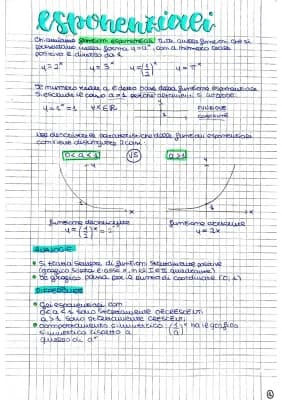 esponenziali
Chiamiamo funzioni esponenziali tutte quelle funzioni che si
presentano nella forma y=aˣ, con a numero reale
positivo e diverso da 1.
y=2ˣ y=3ˣ y=(1/2)ˣ y=πˣ
Il numero reale a è detto base della funzione esponenziale
Si esclude il caso a=1 perché altrimenti si avrebbe
y=1ˣ=1 ∀x∈R FUNZIONE
COSTANTE
caratteristiche delle funzioni esponenziali
conviene distinguere 2 casi.
0<a<1 VS a>1
y y
x x
funzione decrescente funzione crescente
y=(1/2)ˣ y=2x
ANALOGIE
Si tratta sempre di funzioni strettamente positive
(grafico sopra l'asse x, nel I e II quadrante)
Il grafico passa per il punto di coordinate (0,1)
DIFFERENZE
Gli esponenziali con
0<a<1 sono strettamente DECRESCENTI
a>1 sono strettamente CRESCENTI
comportamento simmetrico (1/a)ˣ ha il grafico
simmetrico rispetto a
quello di aˣ